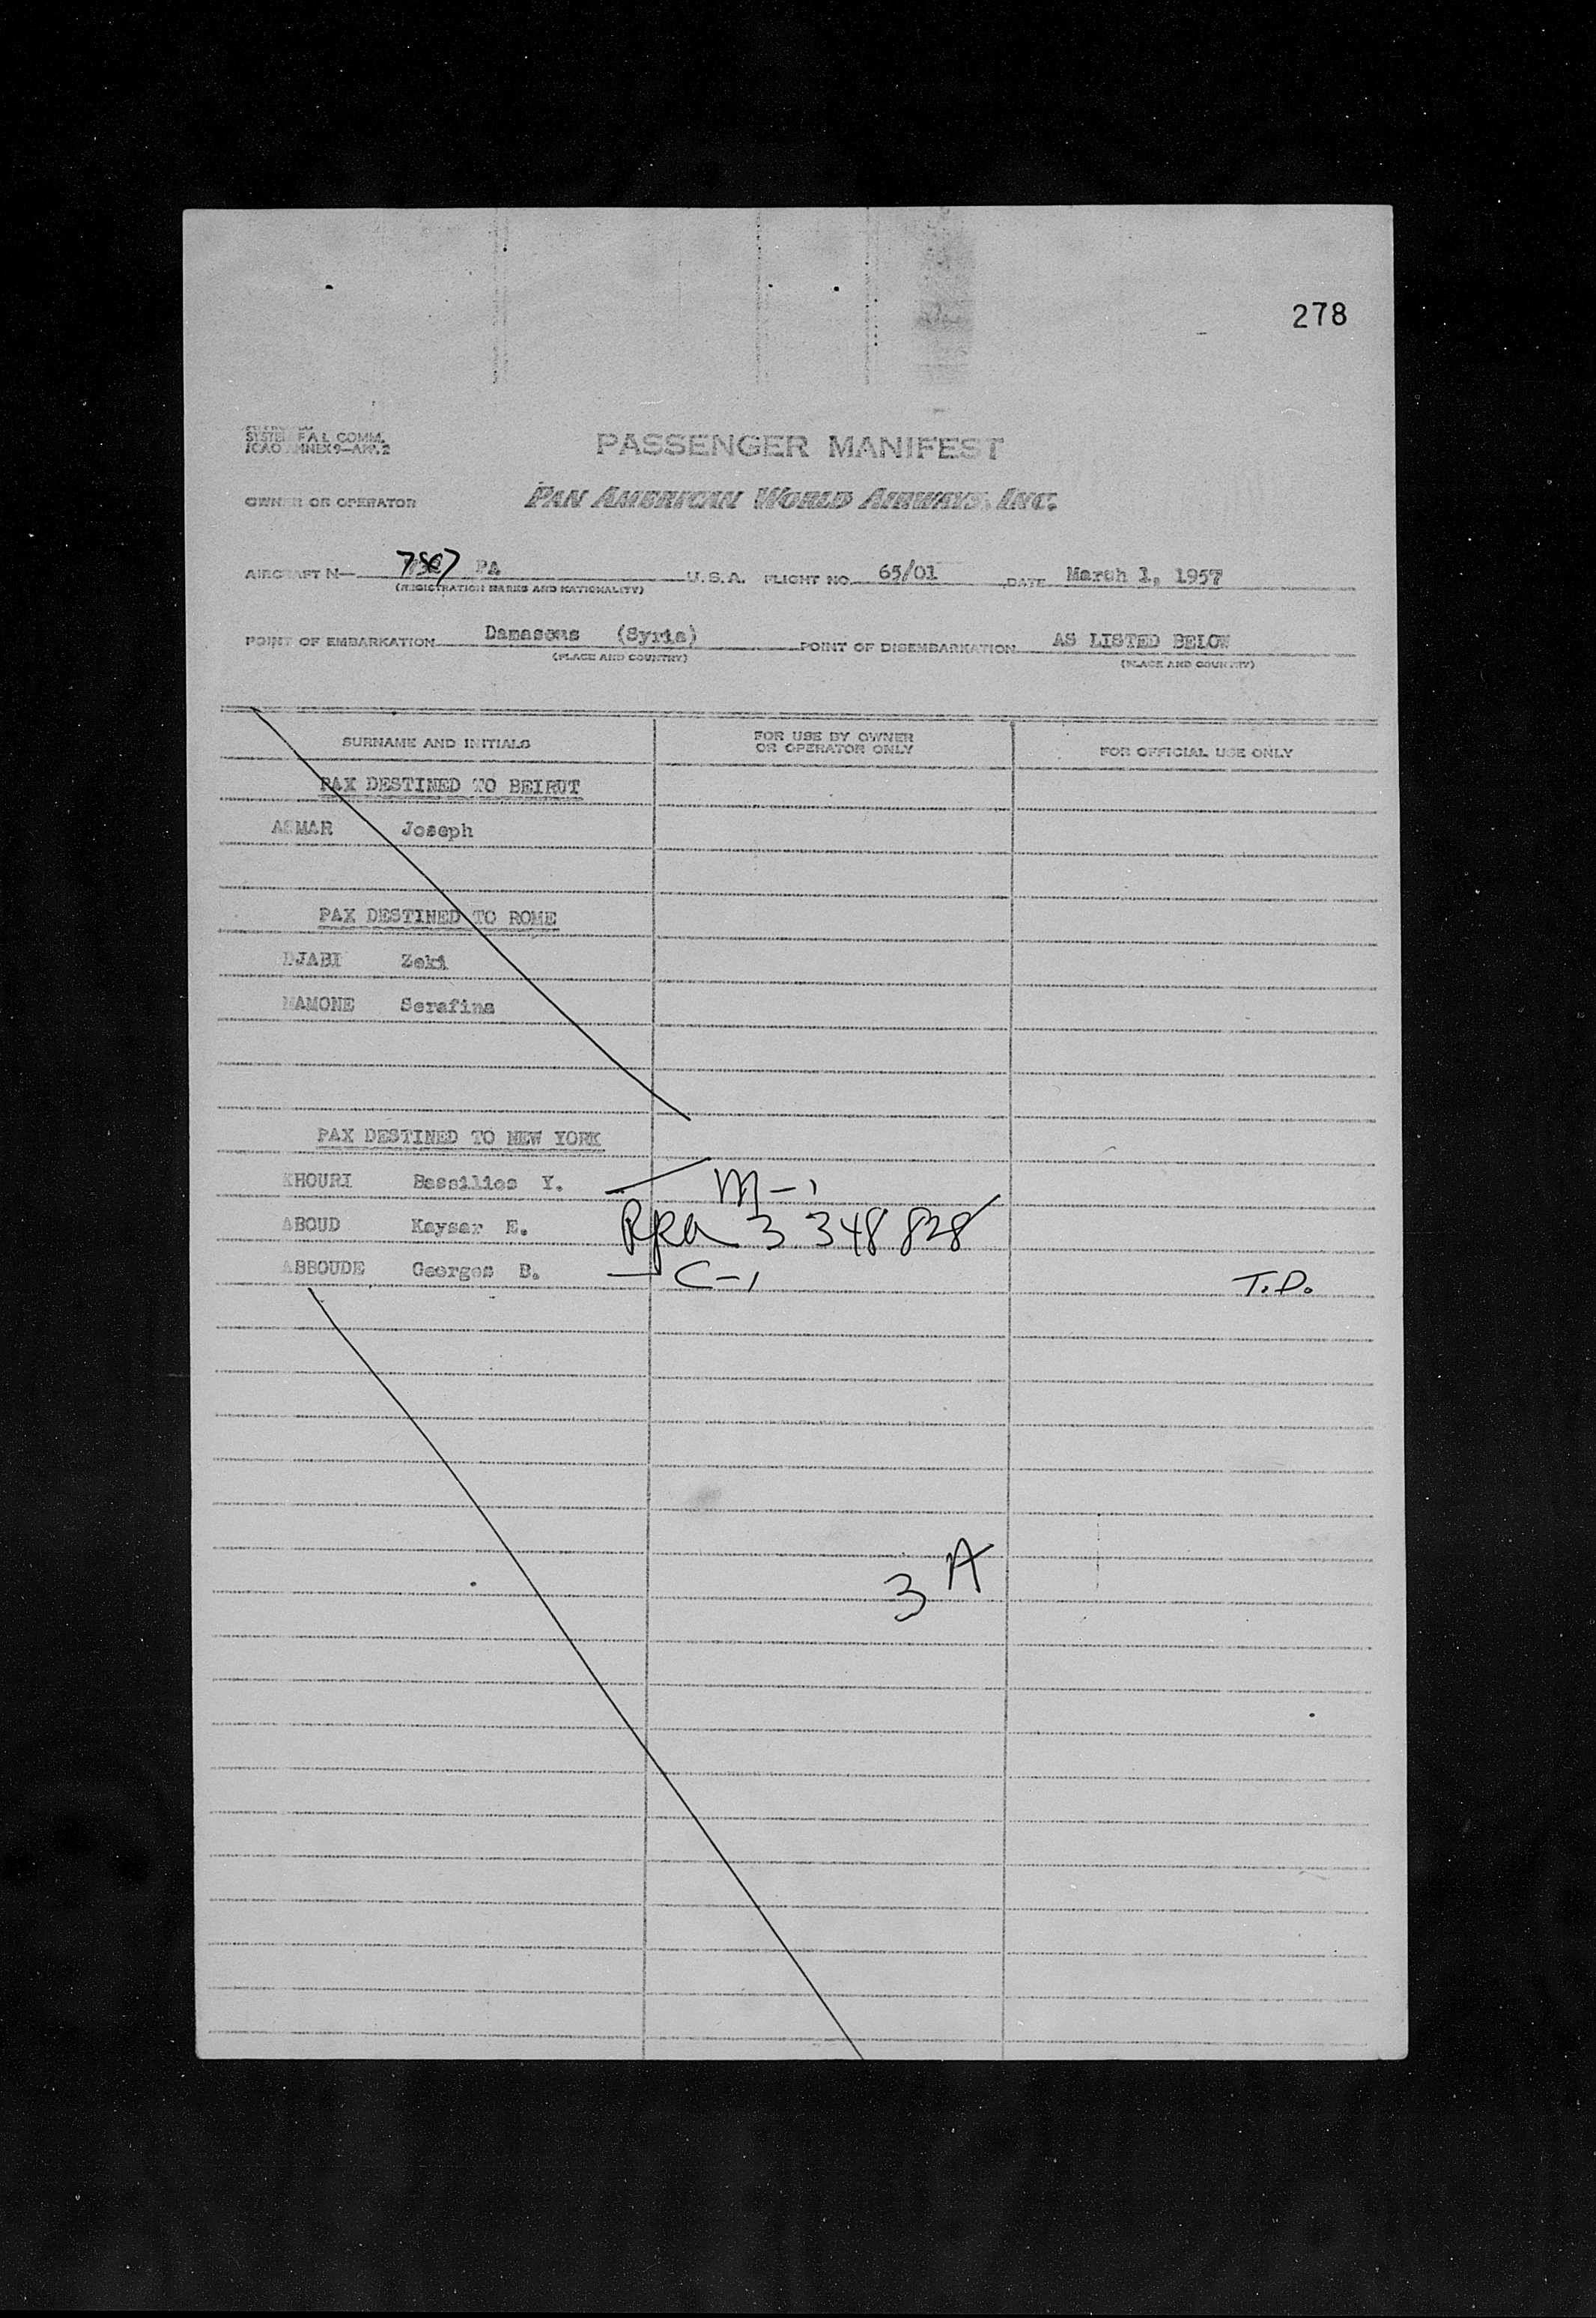 278
SYSTEM FAL COMM.
ICAO ANNEX 9—APP. 2
PASSENGER MANIFEST
OWNER OR OPERATOR PAN AMERICAN WORLD AIRWAYS, INC.
AIRCRAFT N— PA U.S.A. FLIGHT NO. 65/01 DATE March 1, 1957
(REGISTRATION MARKS AND NATIONALITY)
POINT OF EMBARKATION Damascus (Syria) POINT OF DISEMBARKATION AS LISTED BELOW
(PLACE AND COUNTRY) (PLACE AND COUNTRY)
SURNAME AND INITIALS FOR USE BY OWNER OR OPERATOR ONLY FOR OFFICIAL USE ONLY
PAX DESTINED TO BEIRUT
ASMAR Joseph
PAX DESTINED TO ROME
DJABI Zeki
MAMONE Serafina
PAX DESTINED TO NEW YORK
KHOURI Bassilios Y. M-1
ABOUD Kaysar E. 3 348 828
ABBOUDE Georges B. — C-1 T.D.
3 A